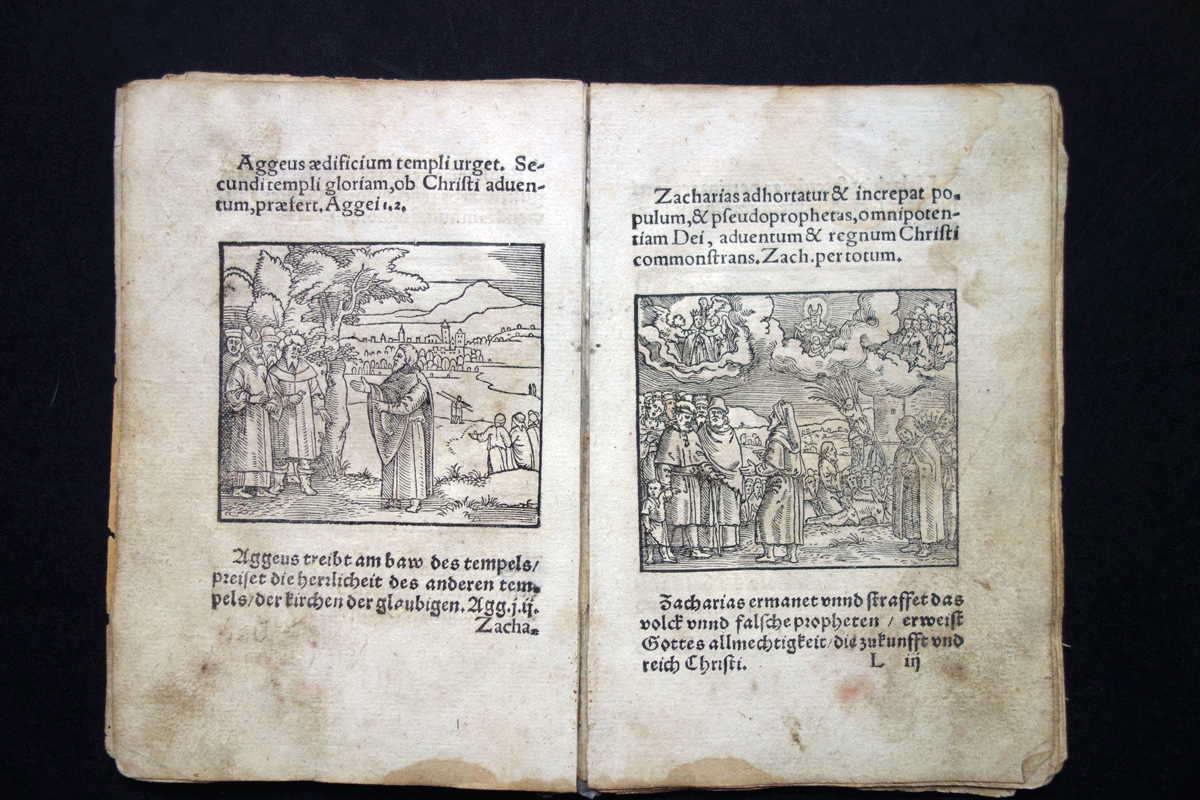 Aggeus ædificium templi urget. Se-
cundi templi gloriam, ob Chriſti aduen-
tum, præfert. Aggei 1.2.
Aggeus treibt am baw des tempels/
preiſet die herrlicheit des anderen tem-
pels/der kirchen der glaubigen. Agg.j.ij.
Zacha-
Zacharias adhortatur & increpat po-
pulum, & pſeudoprophetas, omnipoten-
tiam Dei, aduentum & regnum Chriſti
commonſtrans. Zach. per totum.
Zacharias ermanet vnnd ſtraffet das
volck vnnd falſche propheten / erweiſt
Gottes allmechtigkeit/die zukunfft vnd
reich Chriſti. L iij